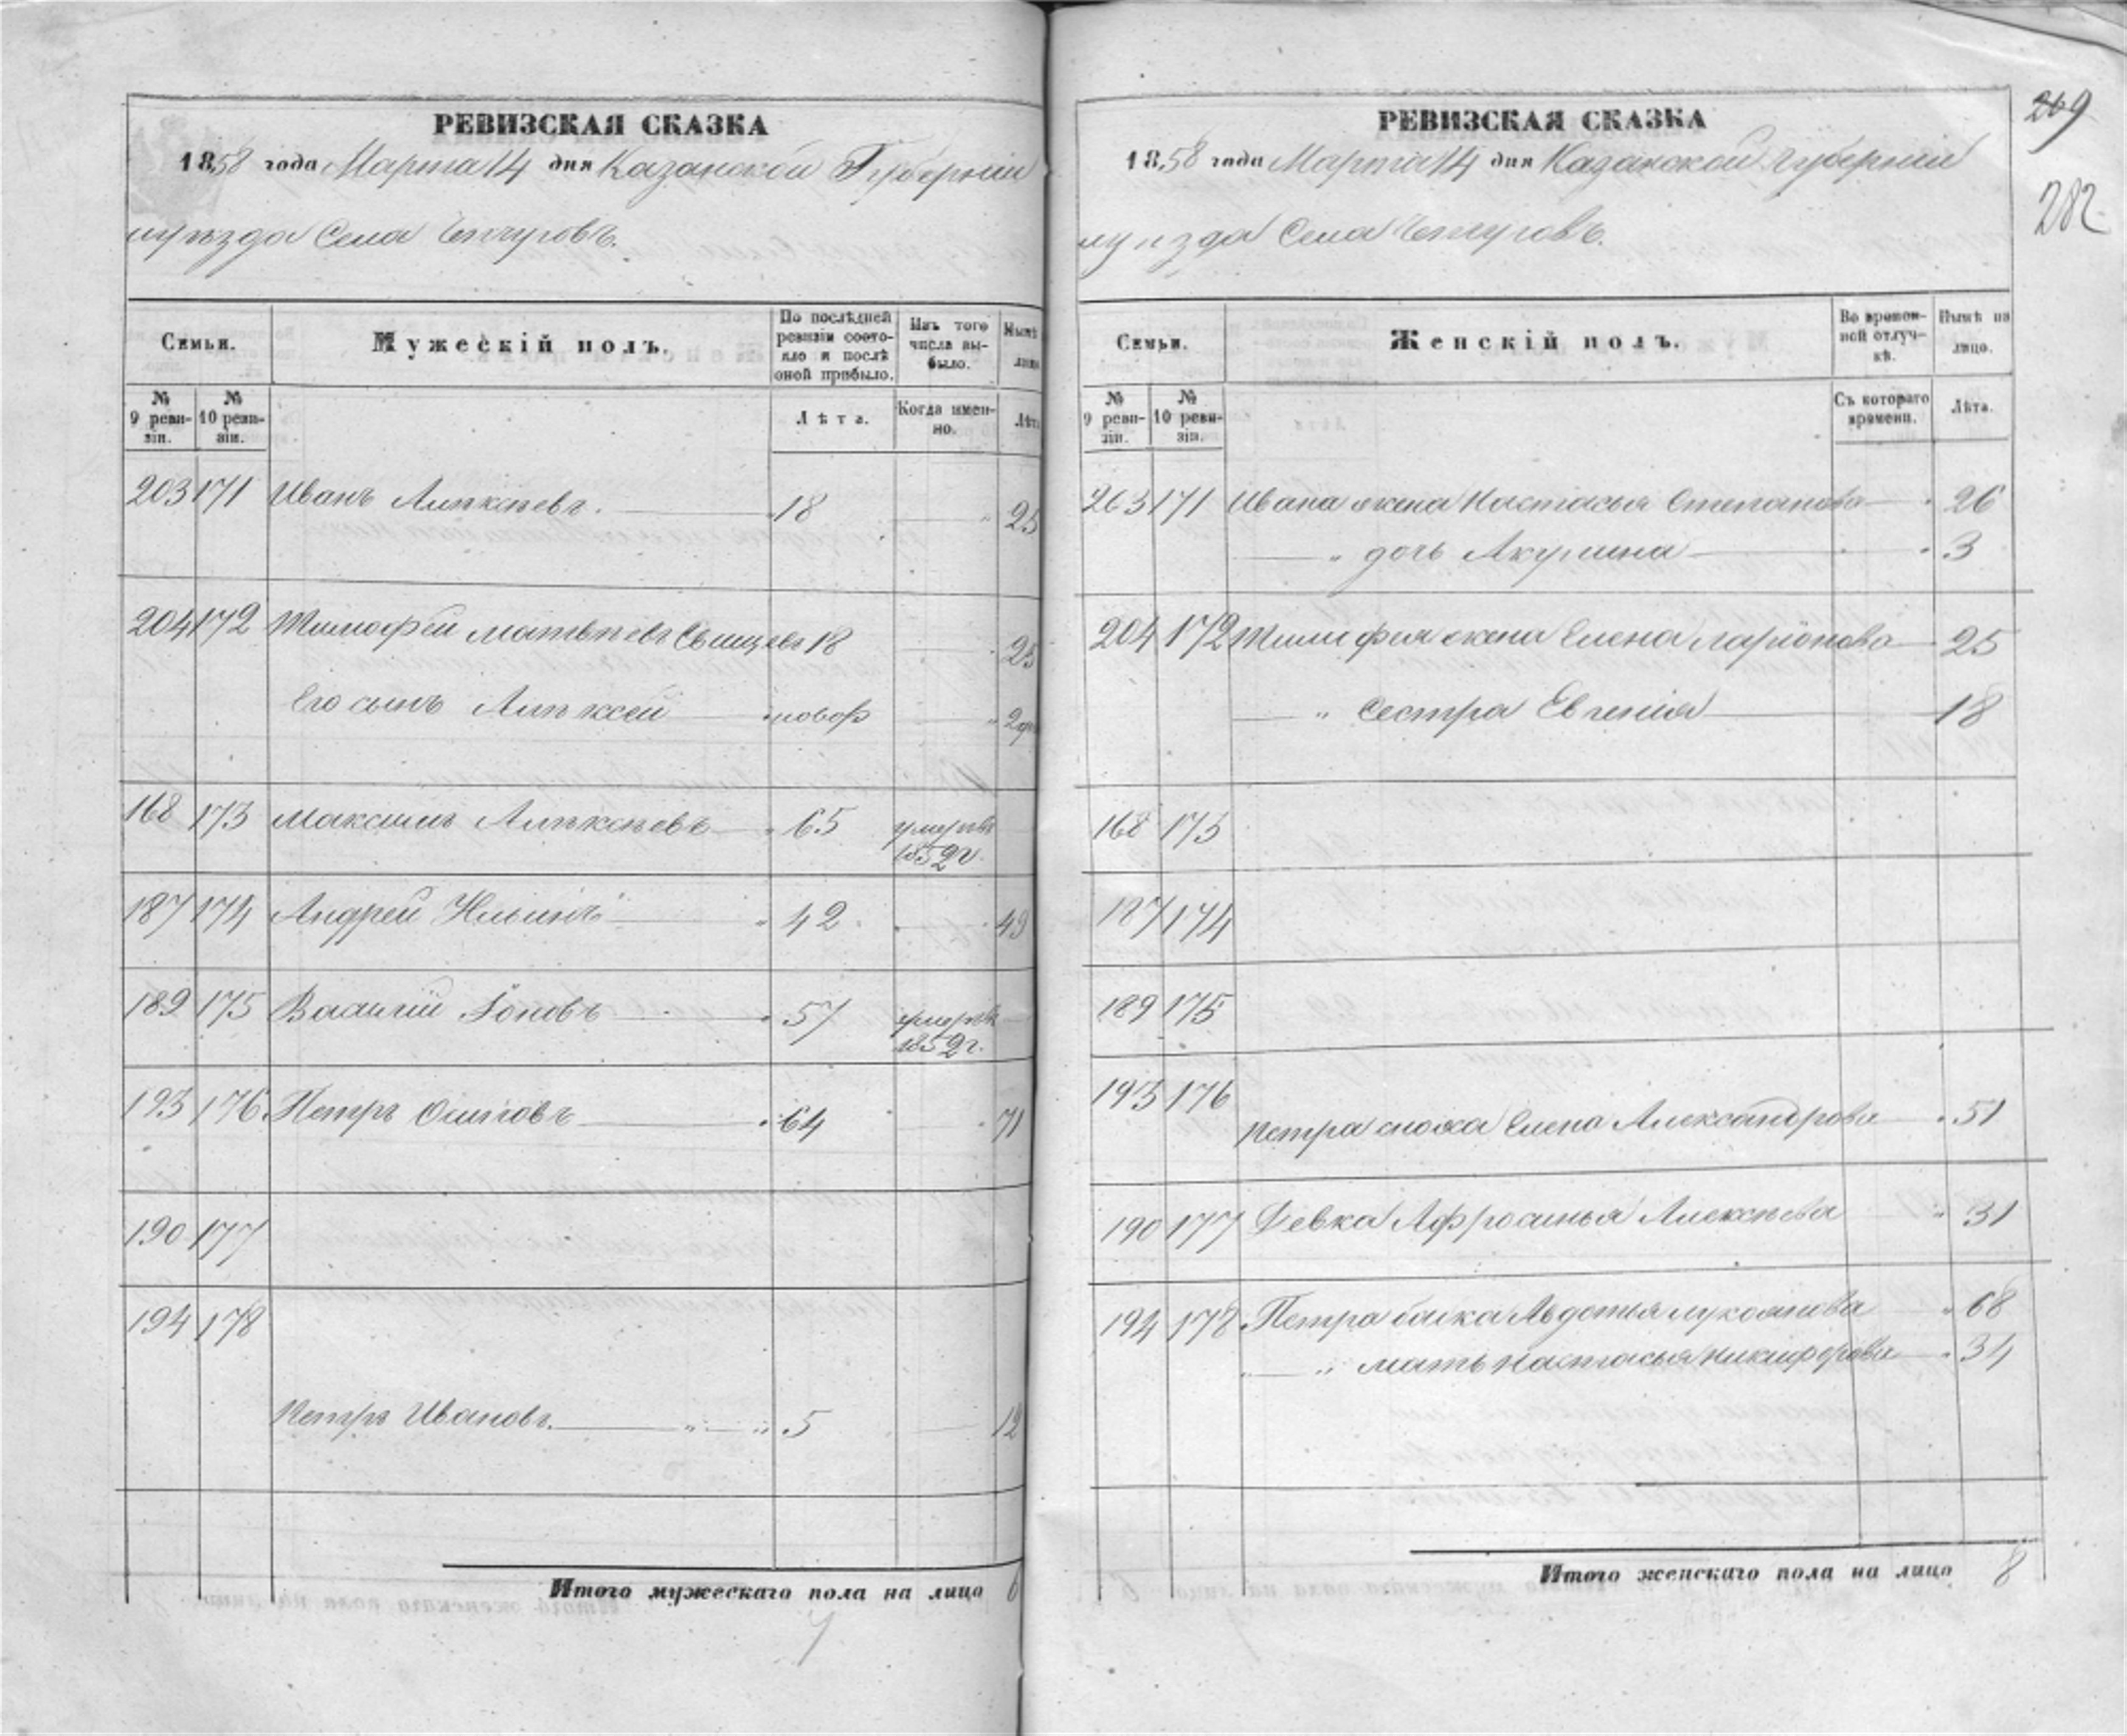 РЕВИЗСКАЯ СКАЗКА
1858 года Марта 14 дня Казанской Губерніи
уѣзда Села
Семьи.
Мужескій полъ.
По послѣдней ревизіи состояло и послѣ оной прибыло.
Изъ того числа выбыло.
Нынѣ
№ 9 ревизіи.
№ 10 ревизіи.
Лѣта.
Когда именно.
Лѣта
203 171 Иванъ Алпксѣевъ. 18 25
204 172 Тимофей Матвѣевъ 18 25
Его сынъ Алпксей новор
168 173 Максимъ Алпксѣевъ 65 умеръ 1852 г.
187 174 Андрей Ильинъ 42 49
189 175 Василій Іоновъ 57 умеръ 1852 г.
193 176 Петръ Осиповъ 64 71
190 177
194 178
Петръ Ивановъ. 5 12
Итого мужескаго пола на лицо 6
РЕВИЗСКАЯ СКАЗКА
1858 года Марта 14 дня Казанской Губерніи
уѣзда Села
269
282
Семьи.
Женскій полъ.
Во временной отлучкѣ.
Нынѣ на лицо.
№ 9 ревизіи.
№ 10 ревизіи.
Съ котораго времени.
Лѣта.
203 171 Ивана жена Настасья Степанова 26
" дочь Акулина 3
204 172 Тимофея жена Елена Ларіонова 25
" сестра Евгенія 18
168 173
187 174
189 175
193 176
Петра сноха Елена Александрова 51
190 177 Девка Афросинья Алексѣева 31
194 178 Петра Авдотья Лукоянова 68
" мать Настасья Никифорова 34
Итого женскаго пола на лицо 8